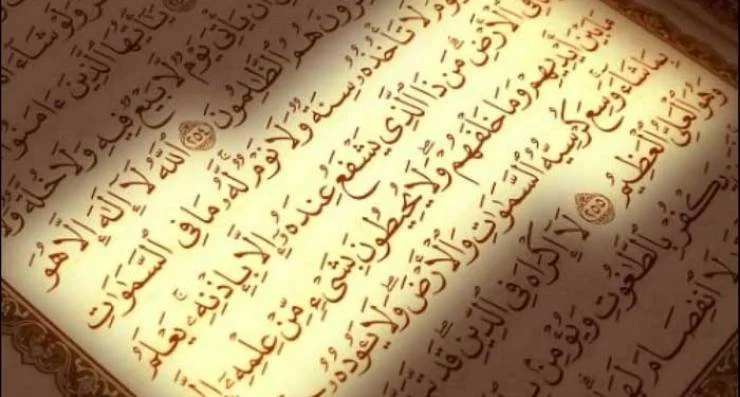 وَلَوْ شَآءَ
يَٰٓأَيُّهَا ٱلَّذِينَ ءَامَنُوٓا۟
أَن يَأْتِىَ يَوْمٌ لَّا بَيْعٌ فِيهِ وَلَا خُلَّةٌ وَلَا
هُمُ ٱلظَّٰلِمُونَ ٢٥٤ ٱللَّهُ لَآ إِلَٰهَ إِلَّا هُوَ
لَا تَأْخُذُهُۥ سِنَةٌ وَلَا نَوْمٌ لَّهُۥ مَا فِى ٱلسَّمَٰوَٰتِ
فِى ٱلْأَرْضِ ۗ مَن ذَا ٱلَّذِى يَشْفَعُ عِندَهُۥٓ إِلَّا بِإِذْنِهِۦ ۚ يَعْلَمُ
مَا بَيْنَ أَيْدِيهِمْ وَمَا خَلْفَهُمْ ۖ وَلَا يُحِيطُونَ بِشَىْءٍ مِّنْ عِلْمِهِۦٓ
بِمَا شَآءَ ۚ وَسِعَ كُرْسِيُّهُ ٱلسَّمَٰوَٰتِ وَٱلْأَرْضَ ۖ وَلَا يَـُٔودُهُۥ
وَهُوَ ٱلْعَلِىُّ ٱلْعَظِيمُ ٢٥٥ لَآ إِكْرَاهَ فِى ٱلدِّينِ ۖ قَد
يَكْفُرْ بِٱلطَّٰغُوتِ وَيُؤْمِنۢ
لَا ٱنفِصَامَ لَهَا